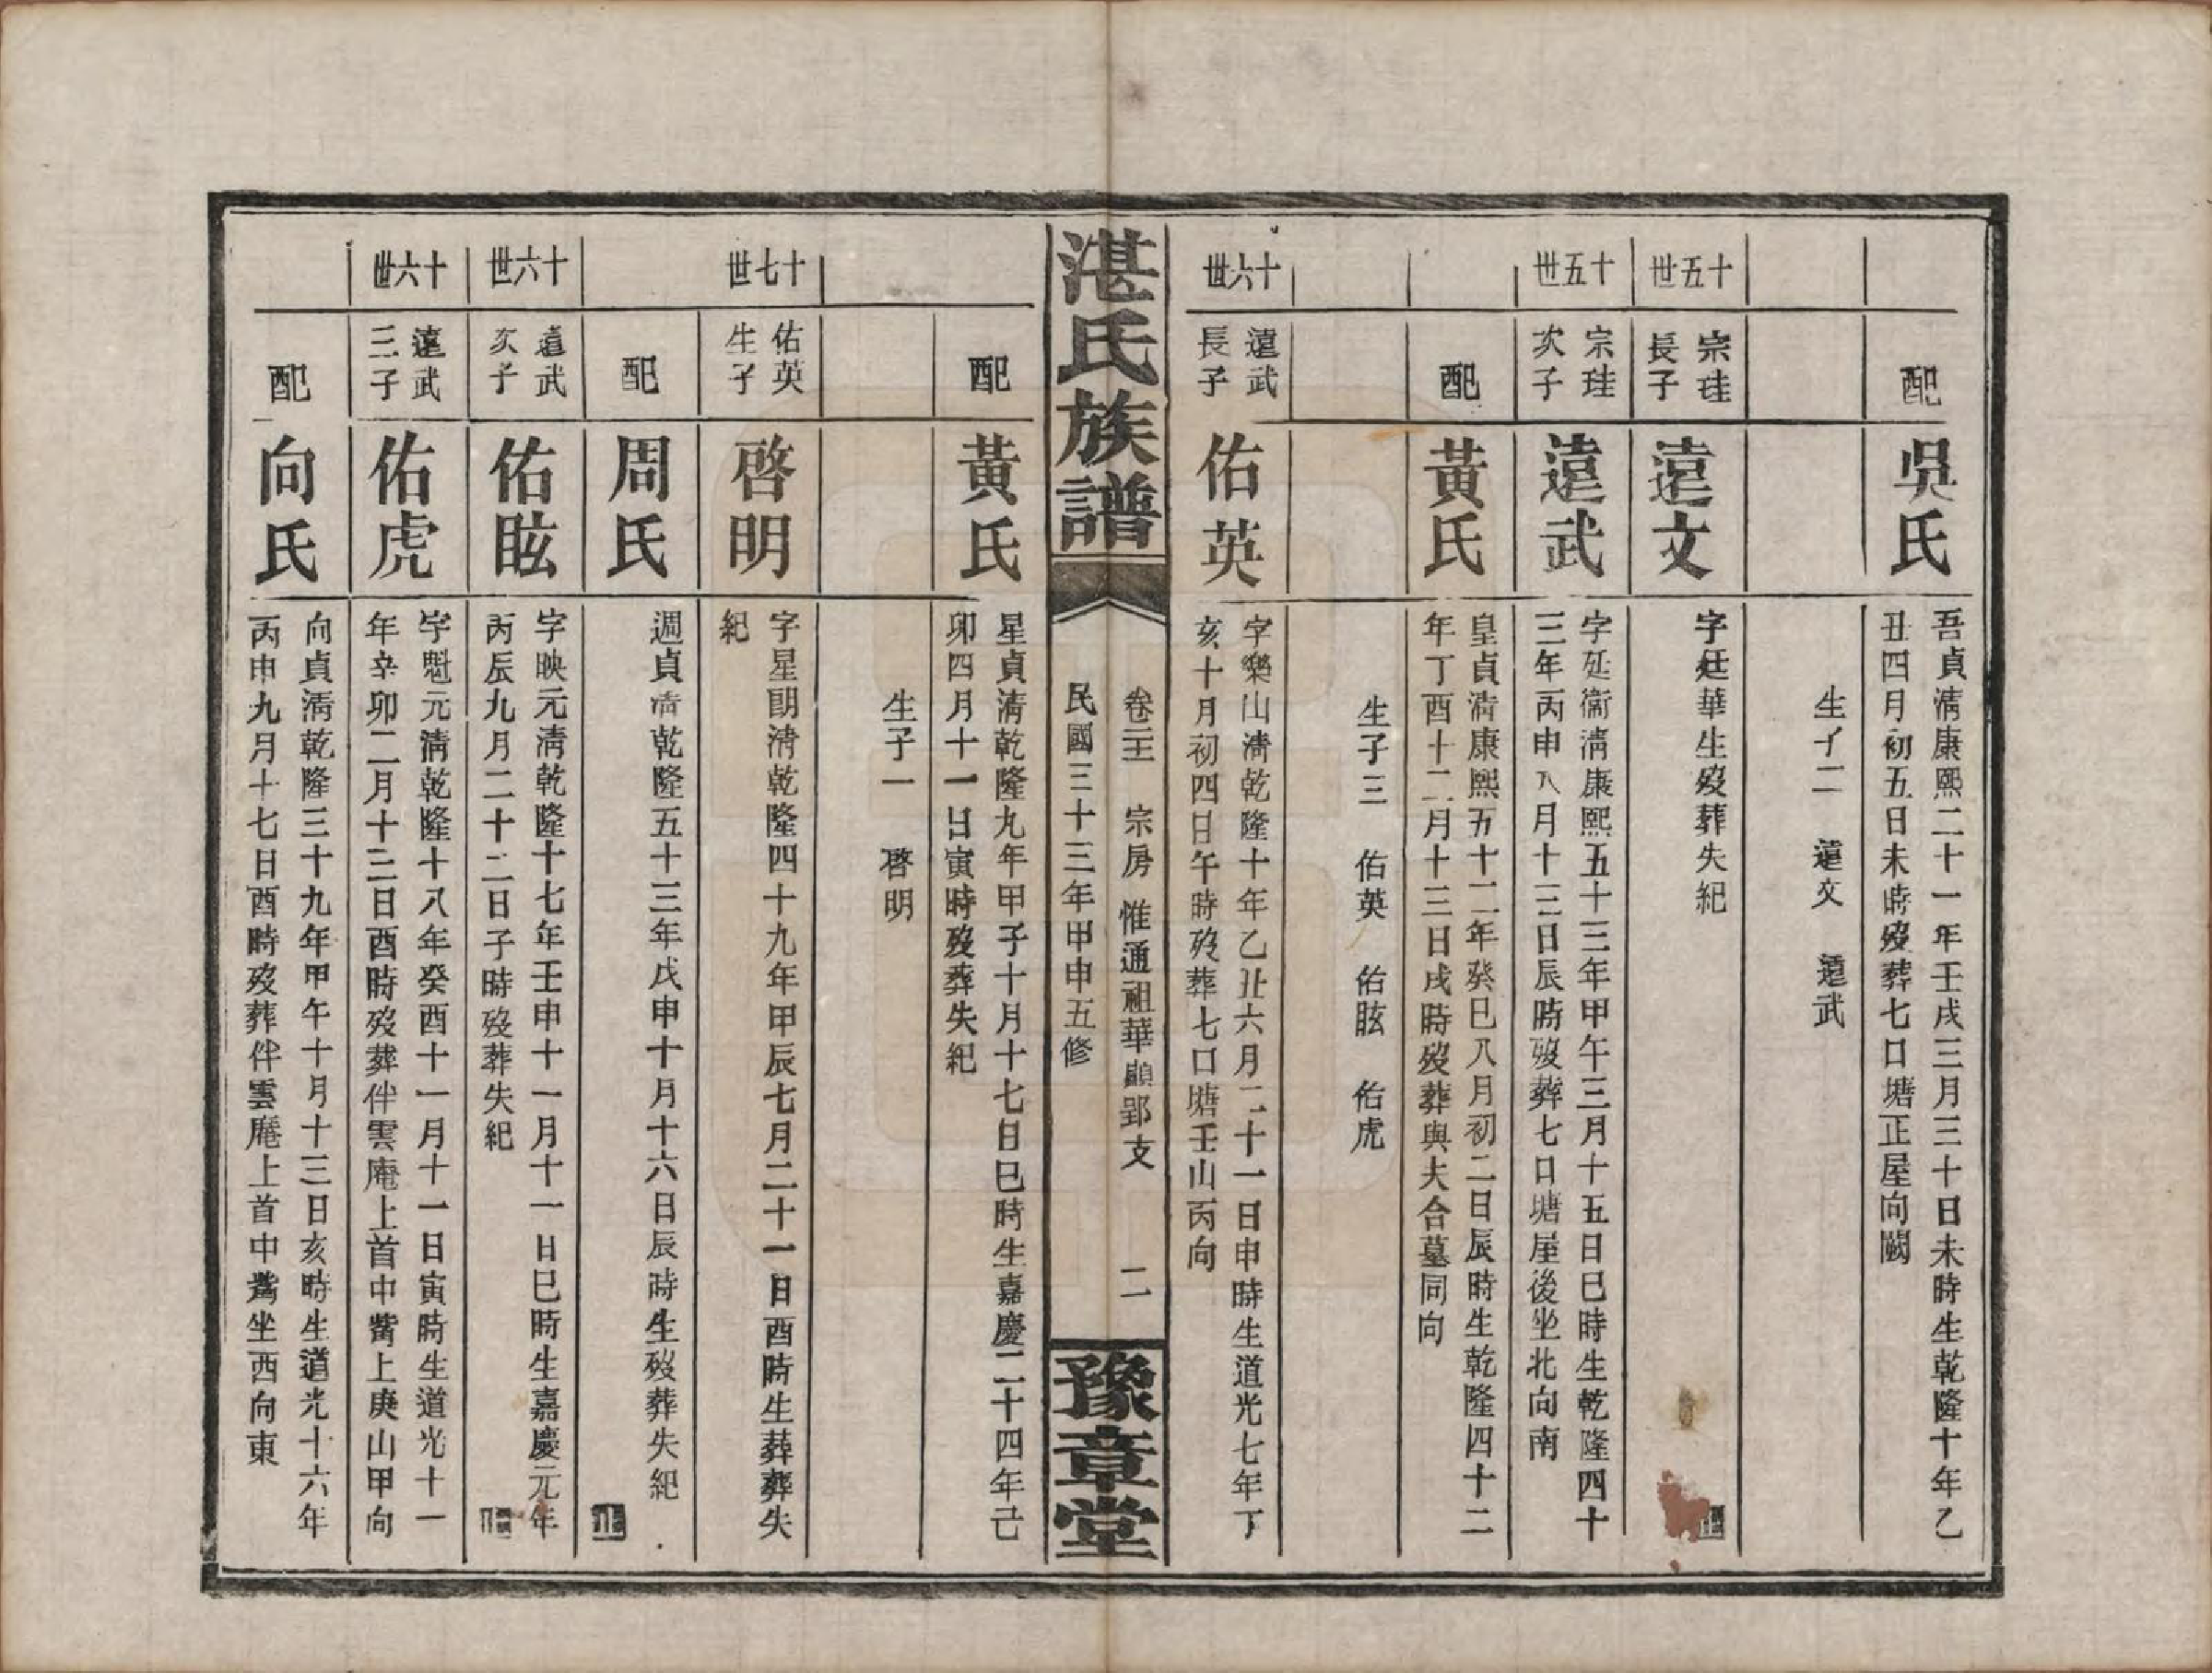 配
吳氏
吾貞清康熙二十一年壬戌三月三十日未時生乾隆十年乙
丑四月初五日未時歿葬七口塘正屋向闕
生子二　遠文　遠武
十五世
宗珪
長子
遠文
字廷華生歿葬失紀
十五世
宗珪
次子
遠武
字延衞清康熙五十三年甲午三月十五日巳時生乾隆四十
三年丙申八月十三日辰時歿葬七口塘屋後坐北向南
配
黃氏
皇貞清康熙五十二年癸巳八月初二日辰時生乾隆四十二
年丁酉十二月十三日戌時歿葬與夫合墓同向
生子三　佑英　佑眩　佑虎
十六世
遠武
長子
佑英
字樂山清乾隆十年乙丑六月二十一日申時生道光七年丁
亥十月初四日午時歿葬七口塘壬山丙向
湛氏族譜
卷三　宗房　惟通祖華顯郢支　二
民國三十三年甲申五修
豫章堂
配
黃氏
星貞清乾隆九年甲子十月十七日巳時生嘉慶二十四年己
卯四月十一日寅時歿葬失紀
生子一　啓明
十七世
佑英
生子
啓明
字星朗清乾隆四十九年甲辰七月二十一日酉時生葬葬失
紀
配
周氏
週貞清乾隆五十三年戊申十月十六日辰時生歿葬失紀
止
十六世
遠武
次子
佑眩
字映元清乾隆十七年壬申十一月十一日巳時生嘉慶元年
丙辰九月二十二日子時歿葬失紀
十六世
遠武
三子
佑虎
字魁元清乾隆十八年癸酉十一月十一日寅時生道光十一
年辛卯二月十三日酉時歿葬伴雲庵上首中嘴上庚山甲向
配
向氏
向貞清乾隆三十九年甲午十月十三日亥時生道光十六年
丙申九月十七日酉時歿葬伴雲庵上首中嘴坐西向東